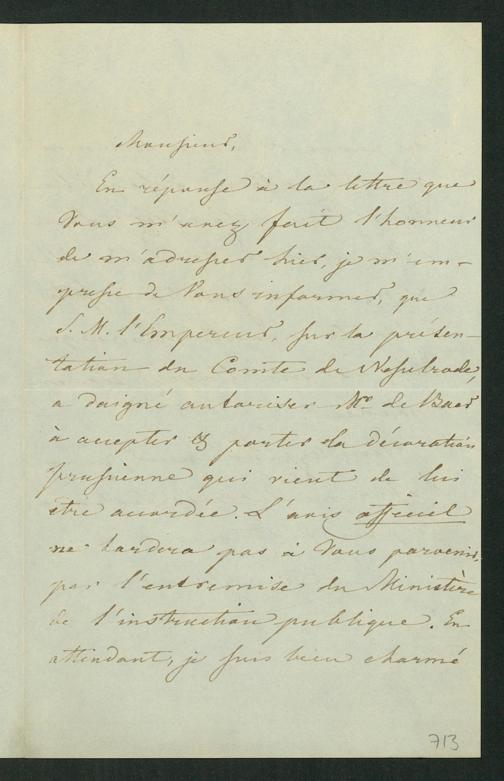 Monsieur,
En réponse à la lettre que
Vous m'avez fait l'honneur
de m'adresser hier, je m'em-
presse de Vous informer, que
S. M. l'Empereur, sur la présen-
tation du Comte de Nesselrode,
a daigné autoriser Mr. de Baer
à accepter & porter la décoration
prussienne qui vient de lui
être accordée. L'avis officiel
ne tardera pas à Vous parvenir,
par l'entremise du Ministère
de l'instruction publique. En
attendant, je suis bien charmé
713